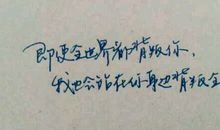 即使全世界都背叛你，
我也会站在你身边背叛全